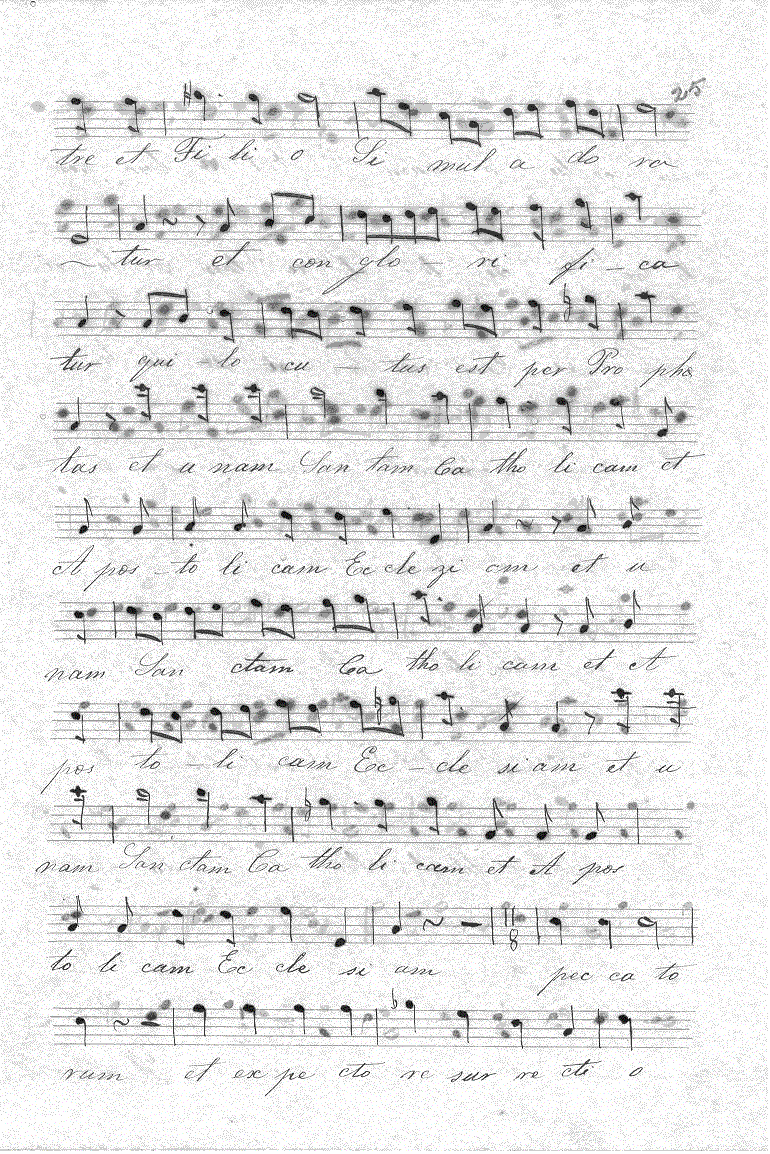 25
tre et Fi li o Si mul a do ra
tur et con glo - ri fi - ca
tur qui - lo cu - tus est per Pro phe
tas et u nam San tam Ca tho li cam et
A pos - to li cam Ec cle zi am et u
nam San ctam Ca tho li cam et A
pos to - li cam Ec - cle si am et u
nam San ctam Ca tho li cam et A pos
to li cam Ec cle si am pec ca to
rum et ex pe cto re sur re cti o